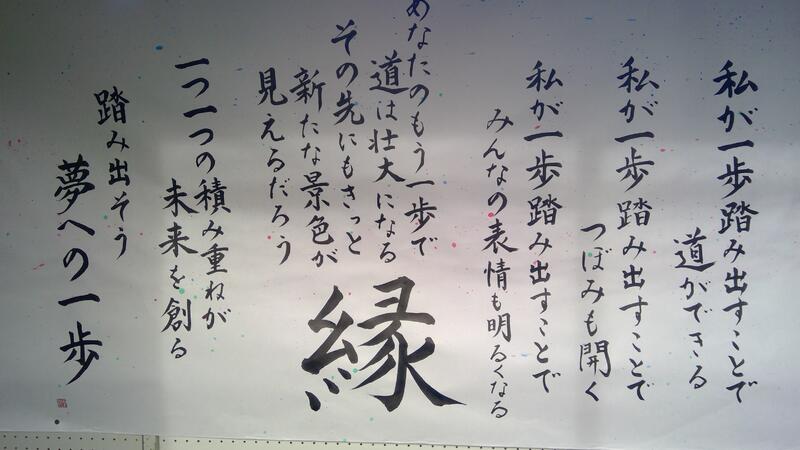 私が一歩踏み出すことで
道ができる
私が一歩踏み出すことで
つぼみも開く
私が一歩踏み出すことで
みんなの表情も明るくなる
あなたのもう一歩で
道は壮大になる
その先にもきっと
新たな景色が
見えるだろう
縁
一つ一つの積み重ねが
未来を創る
踏み出そう
夢への一歩